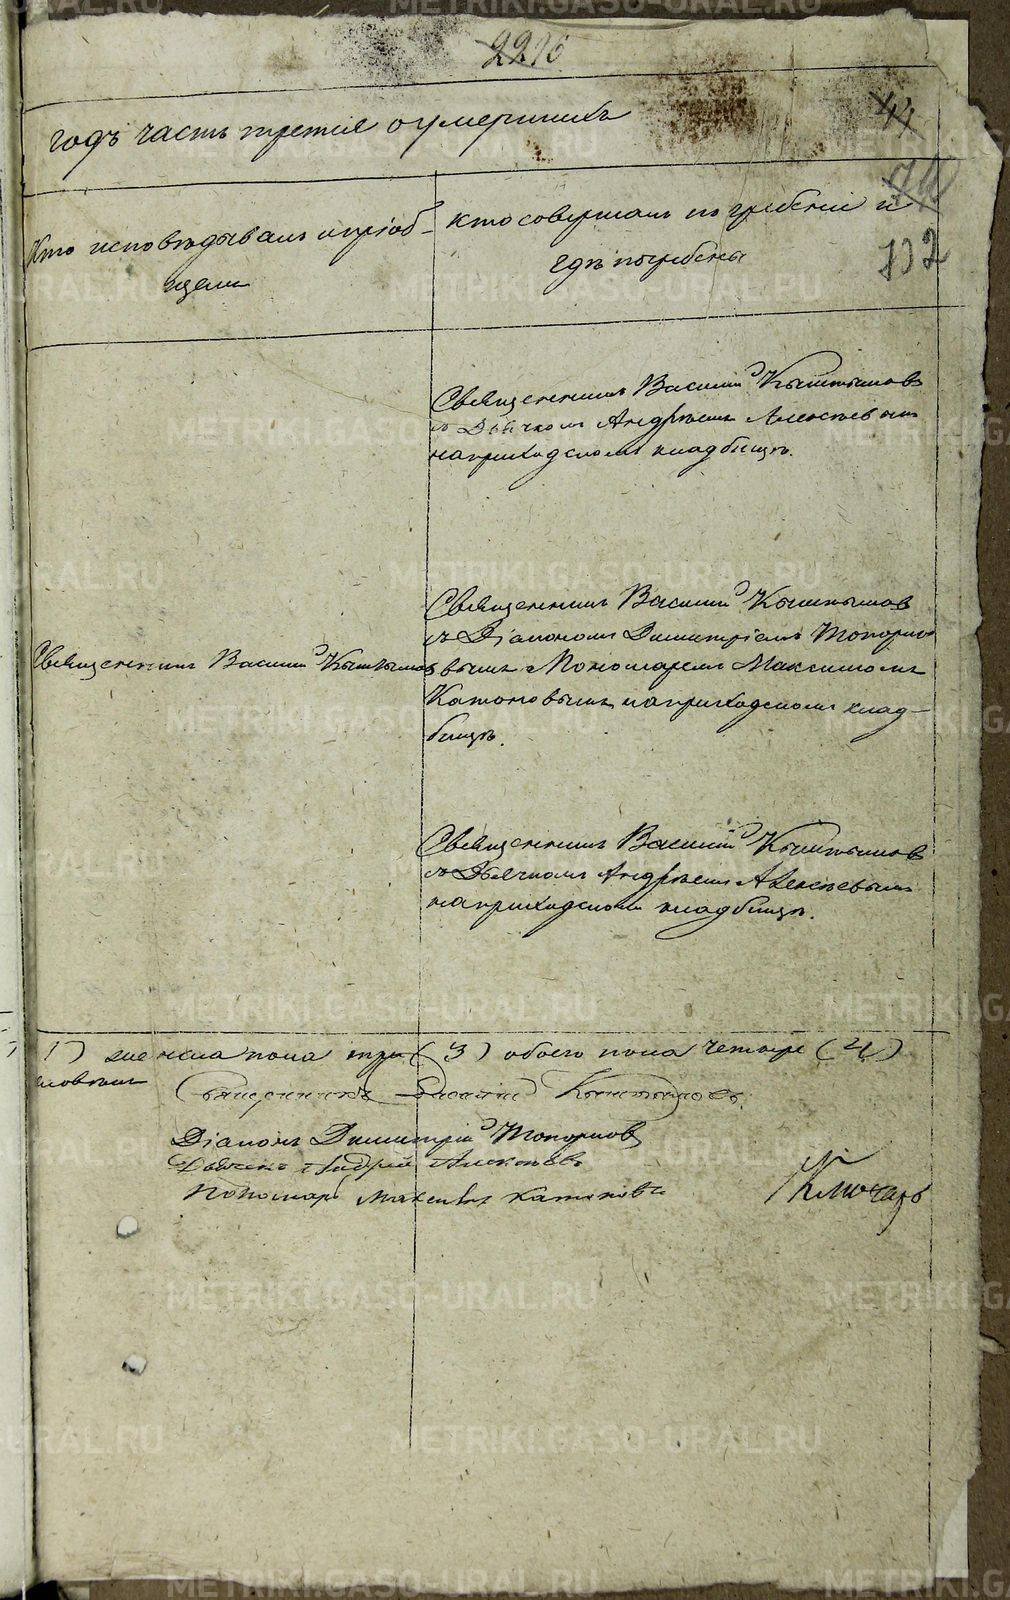 2216
годъ часть третія о умершихъ
44
74
732
Кто исповѣдывалъ и пріоб-
щалъ
кто совершалъ погребеніе и
гдѣ погребены
Священникъ Василій Кыштымовъ
съ Дьячкомъ Андрѣемъ Алексѣевымъ
на приходскомъ кладбищѣ.
Священникъ Василій Кыштымовъ
Священникъ Василій Кыштымов
съ Діакономъ Димитріемъ Топорко
вымъ Пономаремъ Максимомъ
Катановымъ на приходскомъ клад-
бищѣ.
Священникъ Василій Кыштымов
съ Дьячкомъ Андрѣемъ Алексѣевымъ
на приходскомъ кладбищѣ.
1) женска пола три (3) обоего пола четыре (4)
Священникъ Василій Кыштымовъ.
Діаконъ Димитрій Топорков
Дьячекъ Андрей Алексѣевъ
Пономарь Максимъ Катановъ
Ключарь
METRIKI.GASO-URAL.RU